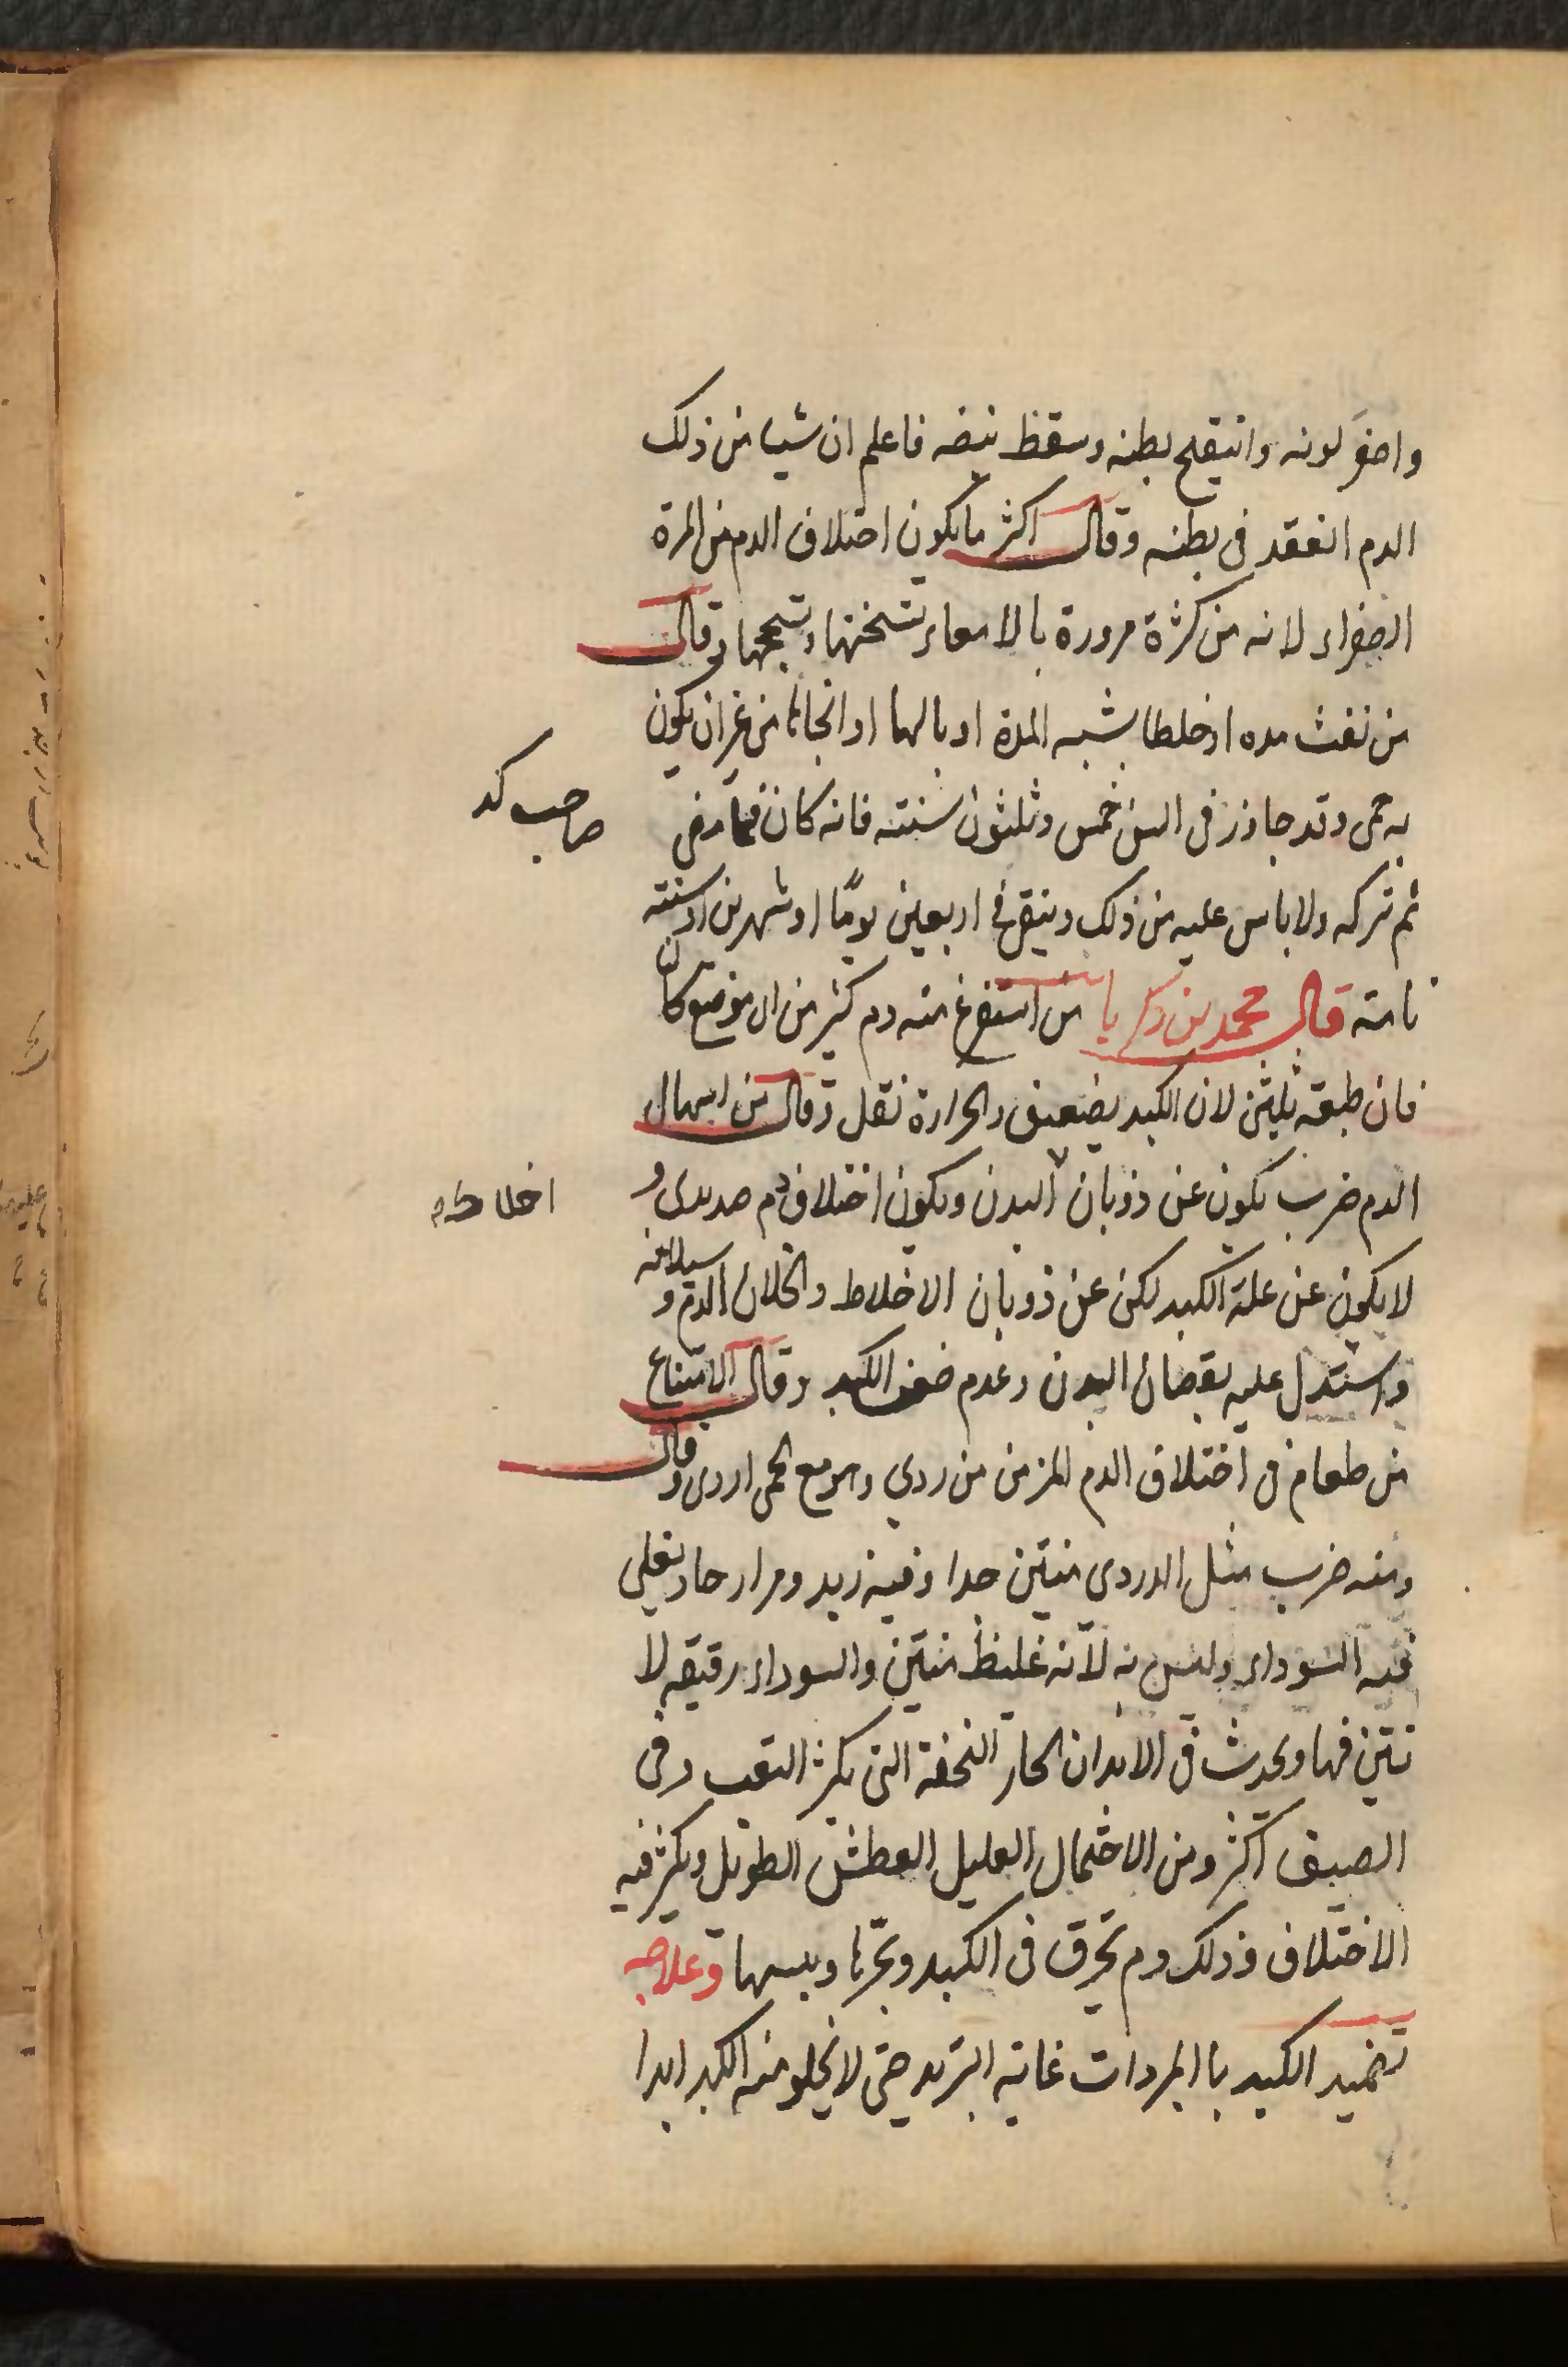 واصفر لونه وانتفخ بطنه وسقط نبضه فاعلم ان شيا من ذلك
الدم انعقد فى بطنه وقال اكثر ما يكون اختلاف الدم من المرة
الصفراء لانه من كثرة مروره بالامعاء تسخنها وتسحجها وقال
من نفث مده او خلطا يشبه المدة او بالها او انجاها من غير ان يكون
به حمى وقد جاوز فى السن خمس وثلثون سنته فانه كان
صاحب كد
ثم تركه ولا باس عليه من ذلك وينقى فى اربعين يومًا او شهرين او سنته
تامته قال محمد بن زكريا من استفرغ منه دم كثير من اى موضع كان
فان طبعته تلين لان الكبد يضعف والحرارة تقل وقال من اسهال
الدم ضرب يكون عن ذوبان البدن ويكون اختلاف دم صديدى و
اخلاط
لا يكون عن علة الكبد لكن عن ذوبان الاخلاط وانحلال الدم و سيلانه
واستدل عليه بقصان البدن وعدم ضعف الكبد وقال الامتناع
من طعام فى اختلاف الدم المزمن من ردي وهو مع الحمى اردى وقال
ومنه ضرب مثل الدردى منتن جدا وفيه زبد ومرار حاد يغلى
فيه السوداء وليس به لانه غليظ منتن والسوداء رقيقه لا
نتن فيها ويحدث فى الابدان الحار النحفة التى يكثر التعب وفى
الصيف اكثر ومن الاحتمال العليل العطش الطويل ويكثر فيه
الاختلاف وذلك دم يحرق فى الكبد وبحرها ويبسها وعلاجه
تضميد الكبد باالمبردات غاية التبريد حتى لا يخلو منه الكبد ابدا